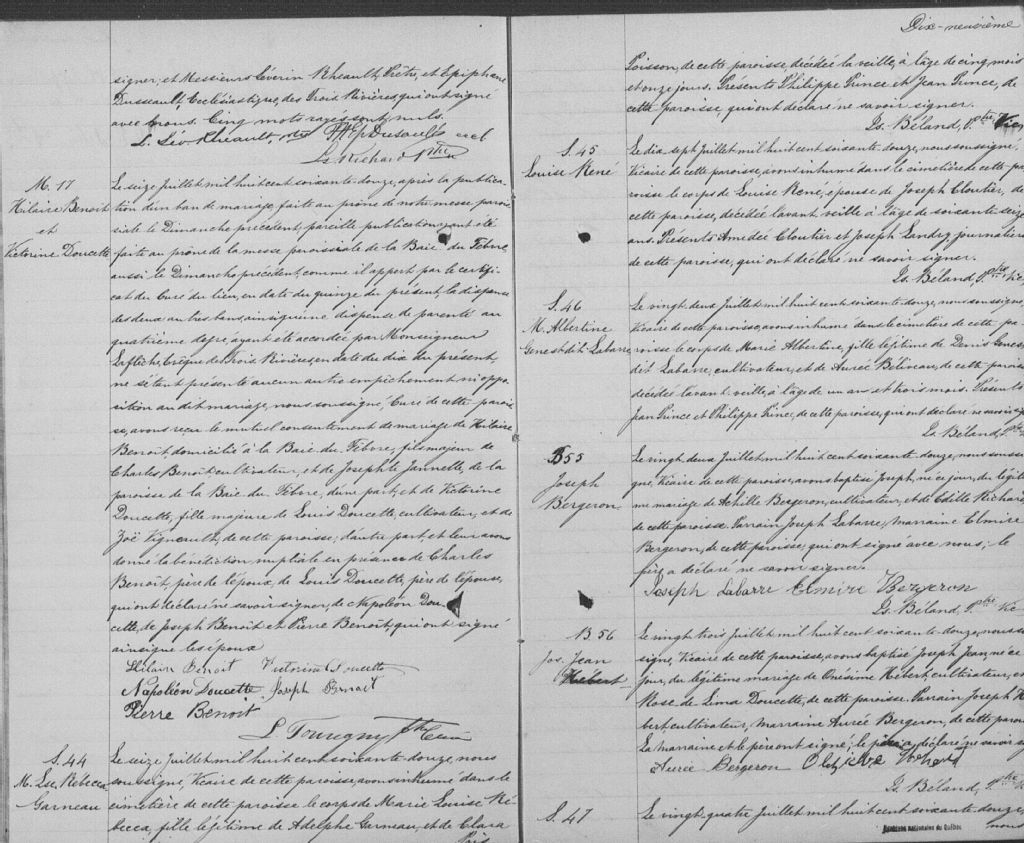 signer, et Messieurs Séverin Rheault, Prêtre, et Epiphane
Dusseault, Ecclésiastique, des Trois Rivières, qui ont signé
avec nous. Cinq mots rayés sont nuls.
L. Sév. Rheault, Ptre
L. Richard Ptre
M. 17
Hilaire Benoit
et
Victorine Doucette
Le seize Juillet mil huit cent soixante douze, après la publica-
tion d'un ban de mariage, faite au prône de notre messe parois-
siale le Dimanche précédent, pareille publication ayant été
faite au prône de la messe paroissiale de la Baie du Febvre
aussi le Dimanche précédent, comme il appert par le certifi-
cat du Curé du lieu, en date du quinze du présent, la dispense
des deux autres bans, ainsi qu'une dispense de parenté au
quatrième degré, ayant été accordée par Monseigneur
Laflèche, Evêque des Trois Rivières, en date du dix du présent,
ne s'étant présenté aucun autre empêchement ni oppo-
sition au dit mariage, nous soussigné, Curé de cette parois-
se, avons reçu le mutuel consentement de mariage de Hilaire
Benoit, domicilié à la Baie du Febvre, fils majeur de
Charles Benoit cultivateur, et de Josephte Jannette, de la
paroisse de la Baie du Febvre, d'une part, et de Victorine
Doucette, fille majeure de Louis Doucette, cultivateur, et de
Zoë Vigneault, de cette paroisse, d'autre part, et leur avons
donné la bénédiction nuptiale en présence de Charles
Benoît, père de l'époux, de Louis Doucette, père de l'épouse,
qui ont déclaré ne savoir signer, de Napoléon Dou-
cette, de Joseph Benoît et Pierre Benoît, qui ont signé
ainsi que les époux
Hilair Benoit Victorine Doucette
Napoléon Doucette Joseph Benoit
Pierre Benoit
L Tourigny Ptre Curé
S. 44
M. Lse. Rebecca
Garneau
Le seize Juillet mil huit cent soixante douze, nous
soussigné, Vicaire de cette paroisse, avons inhumé dans le
cimetière de cette paroisse le corps de Marie Louise Ré-
becca, fille légitime de Adelphe Garneau, et de Clara
Dix-neuvième
Poisson, de cette paroisse, décédée la veille, à l'âge de cinq mois
et onze jours. Présents Philippe Prince et Jean Prince, de
cette paroisse, qui ont déclaré ne savoir signer.
Ls. Béland, Ptre Vic
S. 45
Louise René
Le dix sept Juillet mil huit cent soixante douze, nous soussigné,
Vicaire de cette paroisse, avons inhumé dans le cimetière de cette pa-
roisse le corps de Louise René, épouse de Joseph Cloutier, de
cette paroisse, décédée l'avant veille à l'âge de soixante seize
ans. Présents Amédée Cloutier et Joseph Landry, journaliers
de cette paroisse, qui ont déclaré ne savoir signer.
Ls. Béland, Ptre Vic
S. 46
M. Albertine
Genest dit Labarre
Le vingt deux Juillet mil huit cent soixante douze, nous soussigné,
Vicaire de cette paroisse, avons inhumé dans le cimetière de cette pa-
roisse le corps de Marie Albertine, fille légitime de Denis Genest
dit Labarre, cultivateur, et de Aurée Béliveau, de cette paroisse
décédée l'avant veille, à l'âge de un an et trois mois. Présents
Jean Prince et Philippe Prince, de cette paroisse, qui ont déclaré ne savoir signer
Ls. Béland, Ptre
B 55
Joseph
Bergeron
Le vingt deux Juillet mil huit cent soixante douze, nous soussi-
gné, Vicaire de cette paroisse, avons baptisé Joseph, né ce jour, du légiti-
me mariage de Achille Bergeron, cultivateur, et de Odille Richard
de cette paroisse. Parrain Joseph Labarre, Marraine Elmire
Bergeron, de cette paroisse, qui ont signé avec nous; le
père a déclaré ne savoir signer.
Joseph Labarre Elmire Bergeron
Ls. Béland, Ptre Vic
B 56
Jos. Jean
Hebert
Le vingt trois Juillet mil huit cent soixante douze, nous sous-
signé, Vicaire de cette paroisse, avons baptisé Joseph Jean, né ce
jour, du légitime mariage de Onésime Hébert, cultivateur, et
Rose de Lima Doucette, de cette paroisse. Parrain Joseph Hé-
bert, cultivateur, Marraine Aurée Bergeron, de cette paroisse
La marraine et le père ont signé; le déclaré ne savoir
Aurée Bergeron Hebert
Ls. Béland, Ptre
S. 47
Le vingt quatre Juillet mil huit cent soixante douze,
nous
Archives nationales du Québec